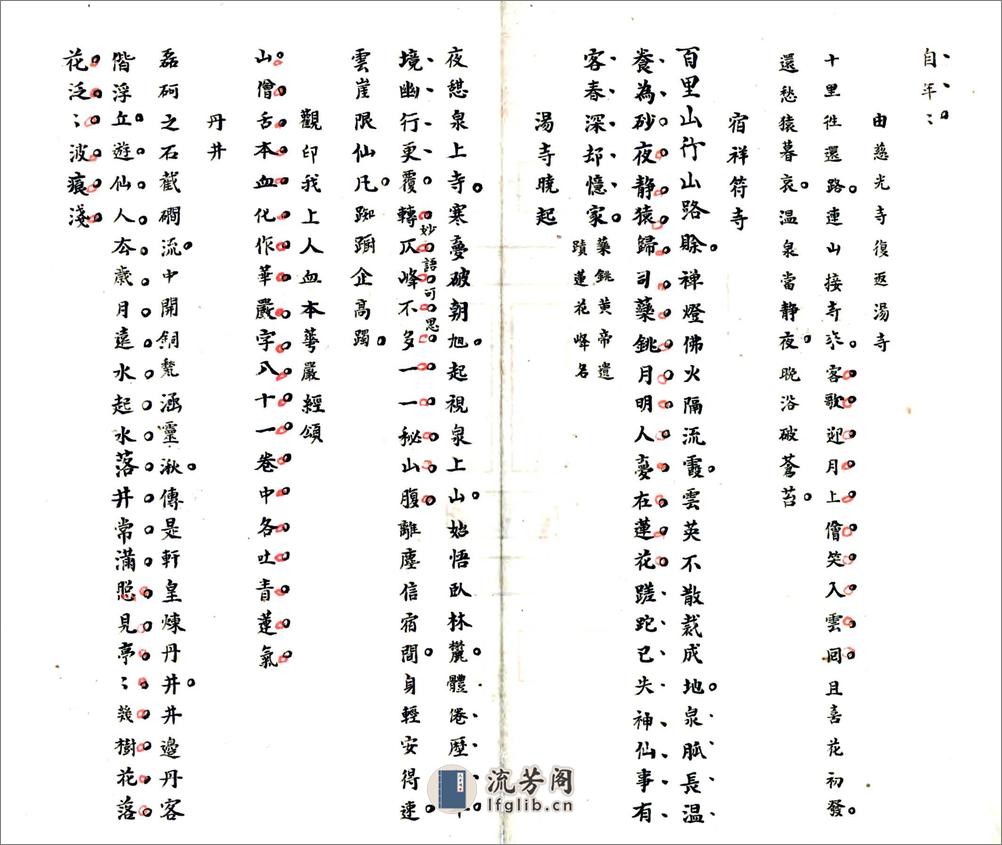 自年〻
由慈光寺復返湯寺
十里徃還路連山接寺客歌迎月上僧笑入雲回且喜花初發
還愁猿暮哀溫泉當靜夜晚浴破蒼苔
宿祥符寺
百里山行山路賒禅燈佛火隔流霞雲英不散裁成地泉脈長溫
養為砂夜靜猿歸司藥銚月明人夢在蓮花蹉跎已失神仙事有
客春深却憶家
藥銚黃帝遺
蹟蓮花峰名
湯寺曉起
夜憇泉上寺寒夢破朝旭起視泉上山始悟臥林麓體倦歷
境幽行更覆轉仄峰不多一一秘山腹離塵信宿間身輕安得速
妙語可思
雲崖限仙凡踟躕企高躅
觀印我上人血本華嚴經頌
山僧舌本血化作華嚴字八十一卷中各吐青蓮氣
丹井
磊砢之石截磵流中開銅甃涵靈湫傳是軒皇煉丹井井邊丹客
偕浮丘遊仙人去歲月遠水起水落井常滿照見亭〻幾樹花落
花泛〻波痕淺
流芳阁
lfglib.cn